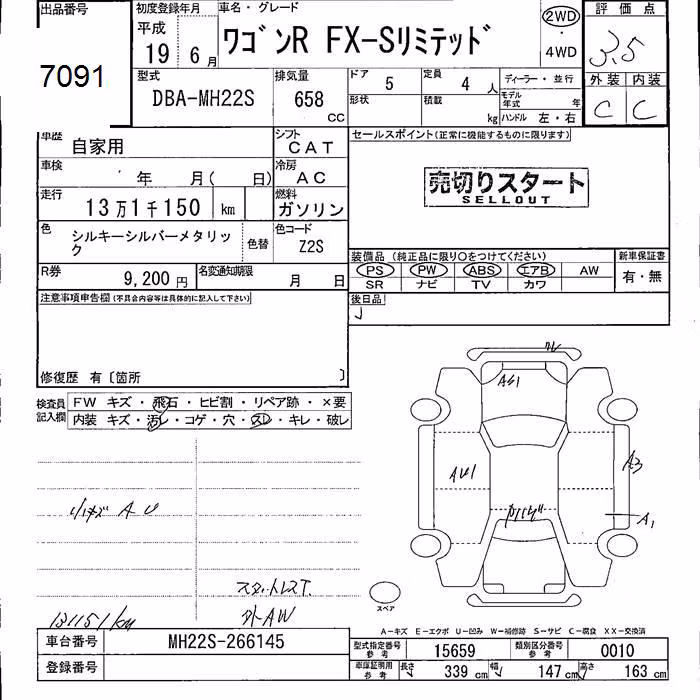 出品番号
7091
初度登録年月
平成
19 6 月
車名・グレード
ワゴンR FX-Sリミテッド
2WD
・
4WD
評価点
3.5
外装 内装
C C
型式
DBA-MH22S
排気量
658
CC
ドア 5
定員 4 人
形状
積載 kg
ディーラー・並行
モデル年式 年
ハンドル 左・右
車歴
自家用
シフト
CAT
車検
年 月( 日)
冷房
AC
走行
13万1千150 km
燃料
ガソリン
色
シルキーシルバーメタリック
色替
色コード
Z2S
R券
9,200 円
名変通知期限
月 日
セールスポイント(正常に機能するものに限ります)
売切りスタート
SELLOUT
装備品 (純正品に限り○をつけてください)
PS PW ABS エアB AW
SR ナビ TV カワ
新車保証書
有・無
後日品
注意事項申告欄(不具合内容等は具体的に記入して下さい)
修復歴 有〔箇所 〕
検査員記入欄
FW キズ・飛石・ヒビ割・リペア跡・×要
内装 キズ・汚レ・コゲ・穴・スレ・キレ・破レ
小キズ A U
スタットレスT.
外AW
131151km
AU1
A3
A1
スペア
A-キズ E-エクボ U-凹み W-補修跡 S-サビ C-腐食 XX-交換済
車台番号
MH22S-266145
登録番号
型式指定番号
参考
15659
類別区分番号
参考
0010
車庫証明用
参考
長さ 339 cm
幅 147 cm
高さ 163 cm